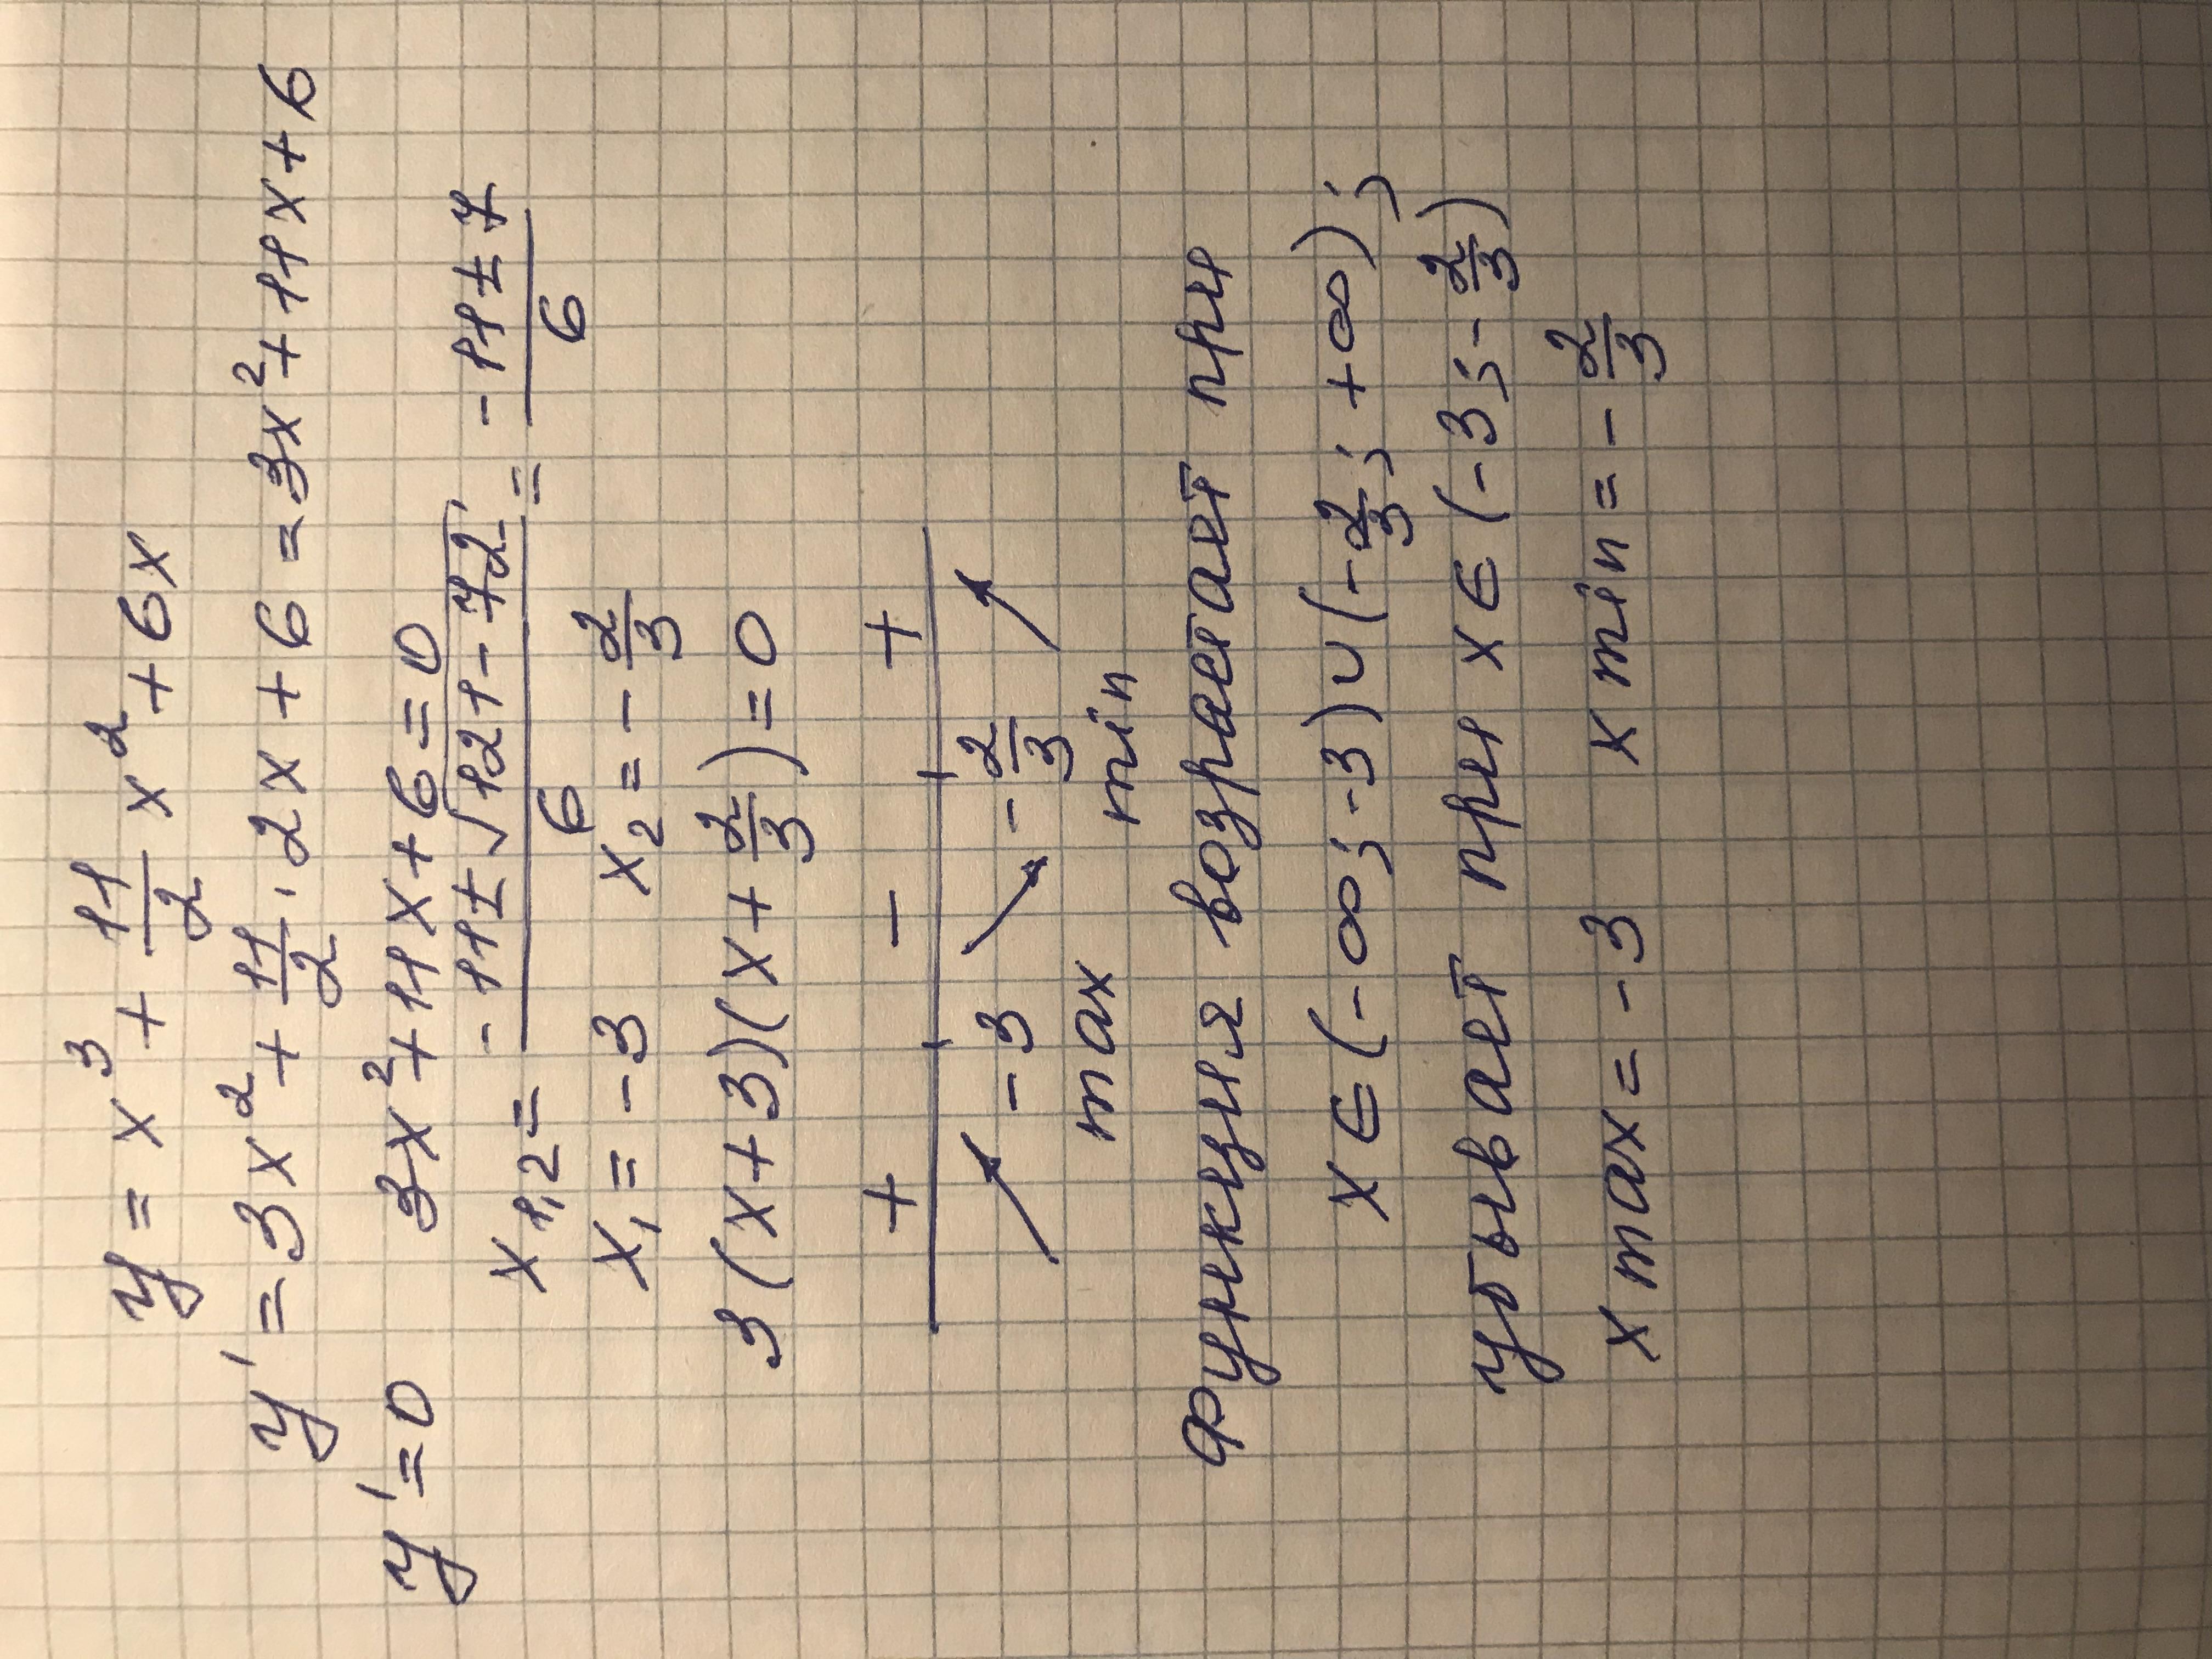 y = x³ + 11/2 x² + 6x
y' = 3x² + 11/2 · 2x + 6 = 3x² + 11x + 6
y' = 0 3x² + 11x + 6 = 0
x₁,₂ = (-11 ± √(121 - 72))/6 = (-11 ± 7)/6
x₁ = -3 x₂ = -2/3
3(x + 3)(x + 2/3) = 0
+ - +
↗ -3 ↘ -2/3 ↗
max min
Функция возрастает при
x ∈ (-∞; -3) ∪ (-2/3; +∞);
убывает при x ∈ (-3; -2/3)
x max = -3 x min = -2/3